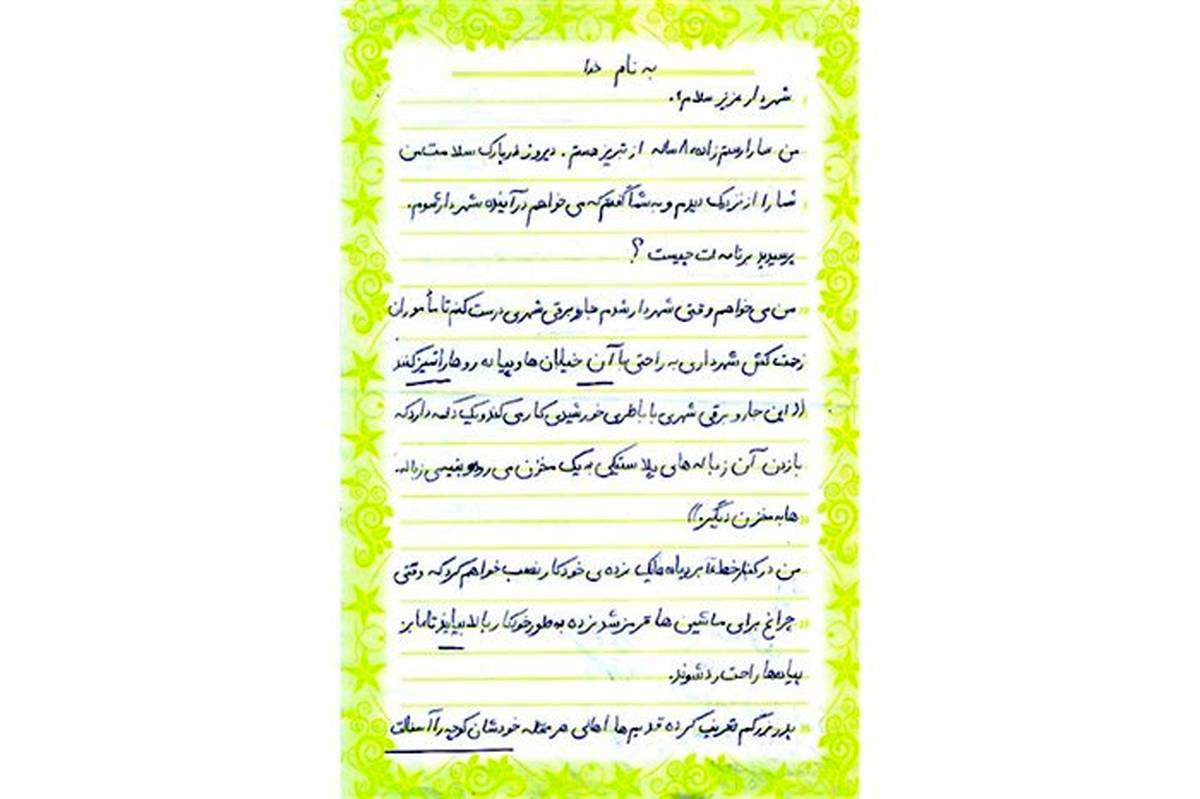 به نام خدا
شهردار عزیز سلام.
من سارا رستم‌زاده ۸ ساله از تبریز هستم. دیروز در پارک سلامت من
شما را از نزدیک دیدم و به شما گفتم که می‌خواهم در آینده شهردار شوم.
پرسیدید برنامه ات چیست ؟
من می‌خواهم وقتی شهردار شدم جاروبرقی شهری درست کنم تا مأموران
زحمت کش شهرداری به راحتی با آن خیابان ها و پیاده رو ها را تمیز کنند
((این جاروبرقی شهری با باطری خورشیدی کار می‌کند و یک دکمه دارد که
با زدن آن زباله های پلاستیکی به یک مخزن می رود و بقیه‌ی زباله
ها به مخزن دیگر.))
من در کنار خط عابر پیاده یک نرده ی خودکار نصب خواهم کرد که وقتی
چراغ برای ماشین ها قرمز شد نرده به طور خودکار بالا بیاید تا عابر
پیاده‌ها راحت رد شوند.
پدربزرگم تعریف کرده قدیم ها اهالی هر محله خودشان کوچه را آسفالت